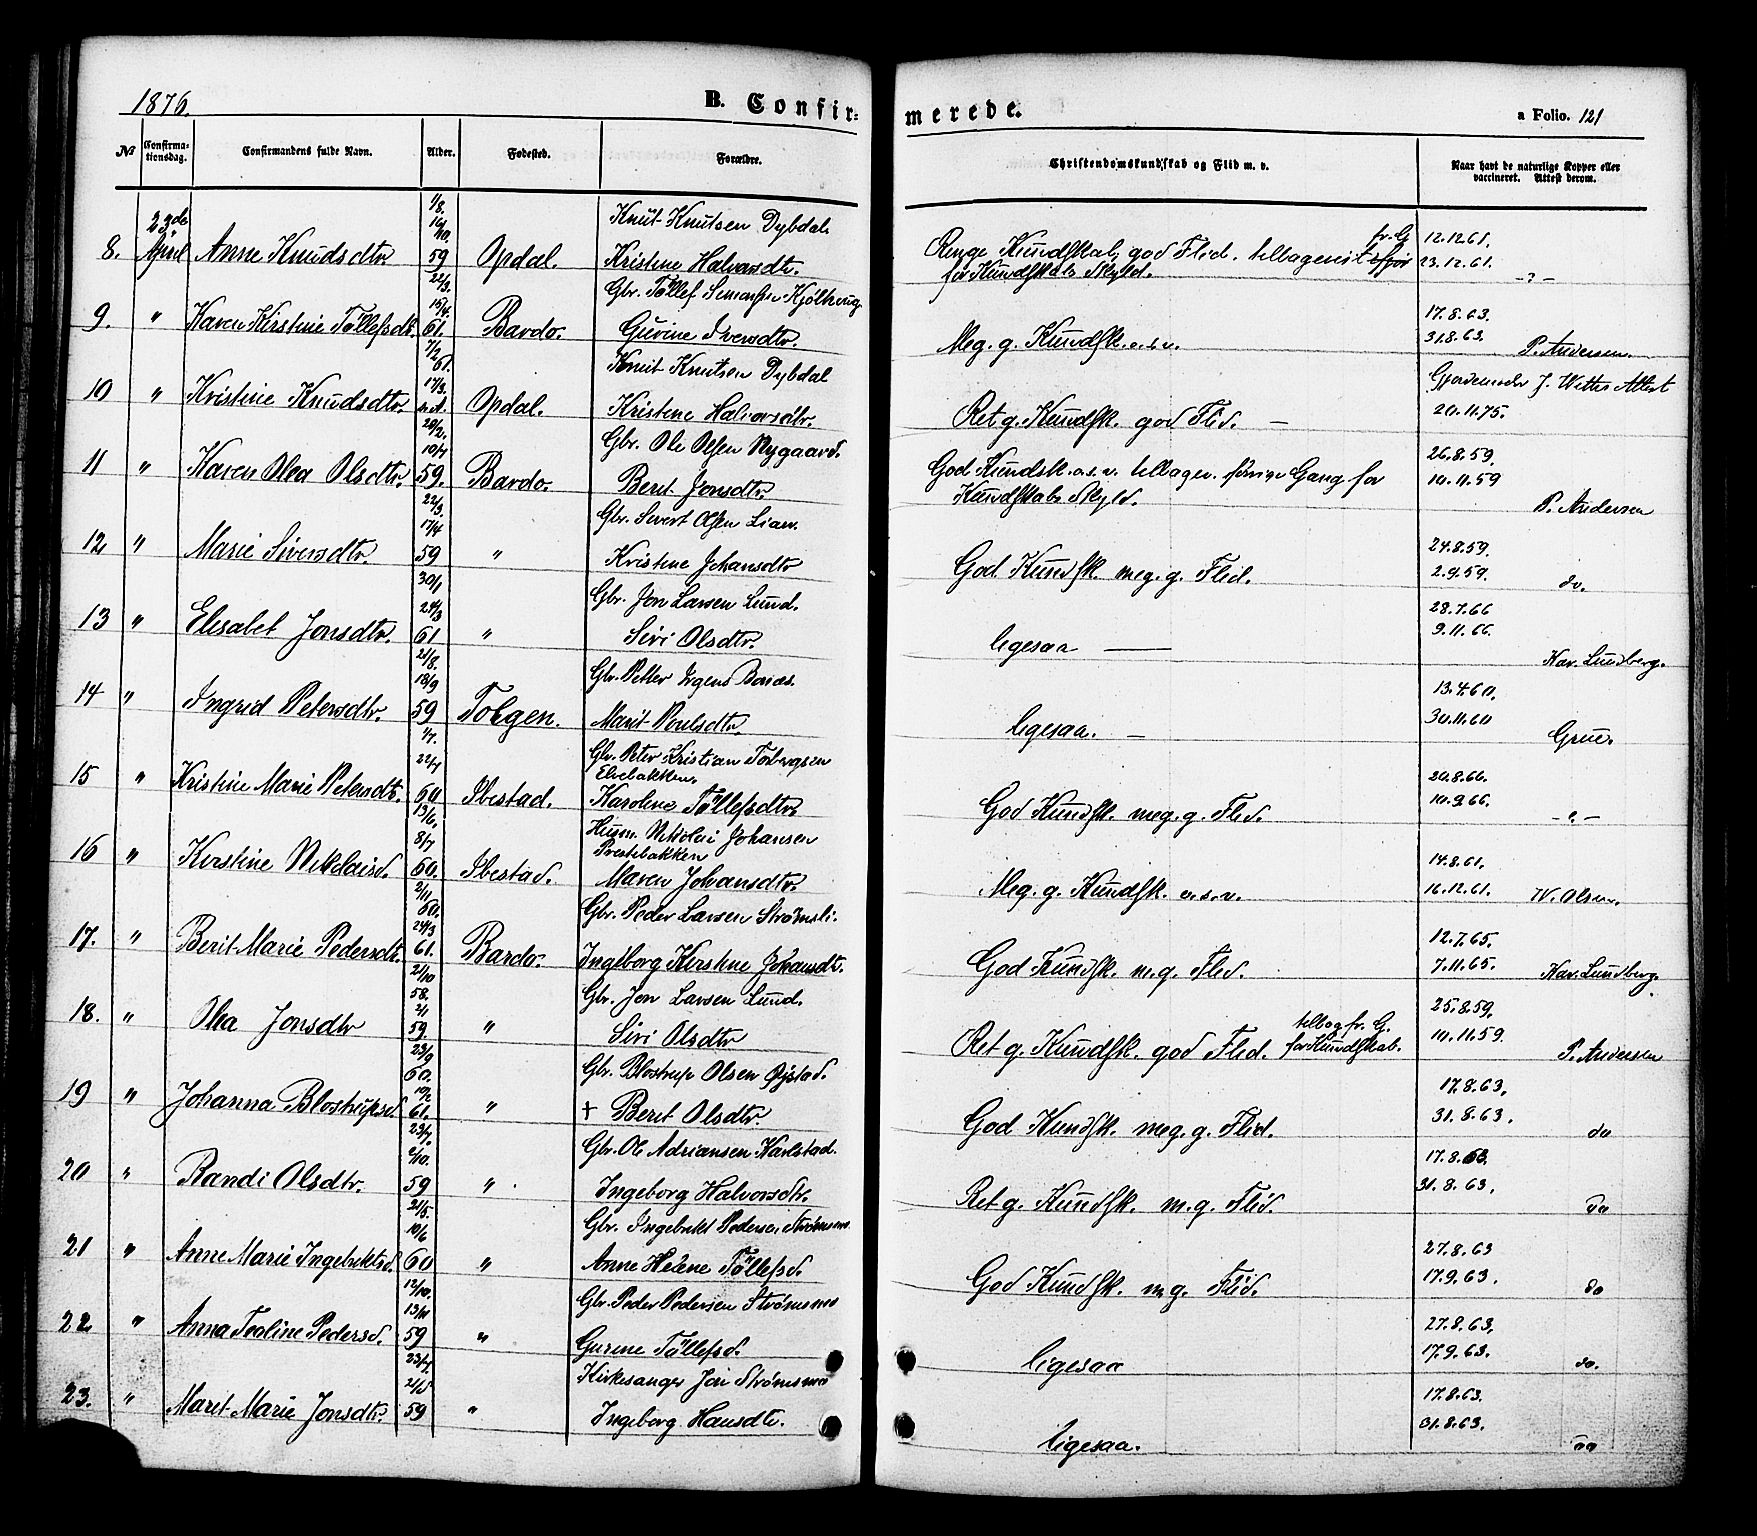 1876. B. Confir= merede. a Folio. 121
№ Confirma-tionsdag. Confirmandens fulde Navn. Alder. Fødested. Forældre. Christendomskundskab og Flid m. v. Naar havt de naturlige Kopper eller vaccineret. Attest derom.
1/8. 23de 16/10. Knut Knutsen Dybdal. fr. G. 12.12.61.
8. April Anne Knudsdtr. 59 Opdal. Kristine Halvorsdtr. Ringe Kundskab, god Flid. tilbagevist 23.12.61.
for Kundskabs Skyld. -"-
22/3. 15/4. Gbr. Töllef Simonsen Kjölhaug 17.8.63.
9. " Karen Kirstine Töllefsdt. 61. Bardo. Gurine Iversdtr. Meg. g. Kundsk. o.s.v. 31.8.63. P. Andersen.
7/2. 61. Knut Knutsen Dybdal Attest
10 " Kristine Knudsdtr. 17/3. Opdal. Kristine Halvorsdtr. Ret g. Kundsk. god Flid. — 20.11.75.
20/2. 10/4 Gbr. Ole Olsen Nygaard. 26.8.59.
11 " Karen Olea Olsdtr. 59. Bardo. Berit Jonsdtr. God Kundsk. o.s.v. tilbagev. forrige Gang for 10.11.59
Kundskabs Skyld. P. Andersen
22/3. 17/4 Gbr. Sivert Olsen Lian. 24.8.59.
12 " Marie Siversdtr. 59 " Kristine Johansdtr God Kundsk. meg. g. Flid. 2.9.59. do.
30/1 24/3 Gbr. Jon Larsen Lund. 28.7.66
13 " Elisabet Jonsdtr. 61 " Siri Olsdtr. ligesaa — 9.11.66. Hav. Lundberg.
21/8. 18/9 Gbr. Petter 13.4.60.
14 " Ingrid Petersdtr. 59 Tolgen. Marit Poulsdtr. ligesaa. — 30.11.60 Grue.
1/7. 22/7 Gbr. Peter Kristian Torbergsen Elvebakken. 20.8.66.
15 " Kristine Marie Petersdt. 60 Ibestad. Karoline Töllefsdtr. God Kundsk. meg. g. Flid. 10.9.66. -"-
13/6. 8/7 Husm. Nikolai Johansen Prestebakken 14.8.61.
16 " Kirstine Nikolaisd. 60. Ibestad. Maren Johansdtr. Meg. g. Kundsk. o.s.v. 16.12.61. W. Olsen.
2/11 60. 24/3 Gbr. Peder Larsen Strömsli. 12.7.65.
17. " Berit Marie Pedersdt. 61. Bardo. Ingeborg Kirstine Johansdt. God Kundsk. m. g. Flid. 7.11.65. Hav. Lundberg.
2/10 58. 2/1 Gbr. Jon Larsen Lund. tilbag. fr. G. 25.8.59.
18. " Olea Jonsdtr 59. " Siri Olsdtr Ret g. Kundsk. god Flid. for Kundskab. 10.11.59. P. Andersen
23/9 60. Gbr. Blostrup Olsen Øjstad. 17.8.63,
19 " Johanna Blostrupsd. 61. " + Berit Olsdtr. God Kundsk. meg. g. Flid. 31.8.63. do
23/7. Gbr. Ole Adriansen Karlstad. 17.8.63.
20 " Randi Olsdtr. 59 " Ingeborg Halvorsdtr. Ret g. Kundsk. m. g. Flid. 31.8.63, do
21/5. 10/6 Gbr. Ingebrikt Pedersen Strømsmo 27.8.63
21 " Anne Marie Ingebriktsd. 60 " Anne Helene Töllefsd. God Kundsk. m. g. Flid. 17.9.63. do
12/10. 13/11 Gbr. Peder Pedersen Strømsmo 27.8.63,
22 " Anna Tealine Pedersd. 59 " Gurine Töllefsd. ligesaa 17.9.63. do.
23/4 2/5 Kirkesanger Jon Strømsmo 17.8.63.
23. " Maret Marie Jonsdtr. 59 " Ingeborg Hansdtr. ligesaa. 31.8.63. do